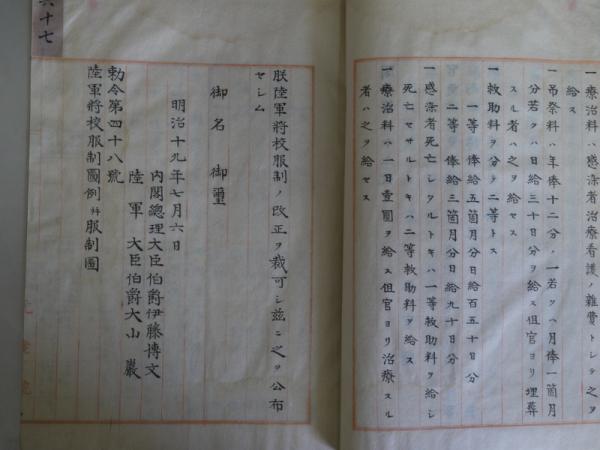 一療治料ハ感染者治療看護ノ雜費トシテ之ヲ
給ス
一吊祭料ハ年俸十二分ノ一若クハ月俸一箇月
分若クハ日給三十日分ヲ給ス但官ヨリ埋葬
スル者ハ之ヲ給セス
一救助料ヲ分テ二等トス
一等 俸給五箇月分日給百五十日分
二等 俸給三箇月分日給九十日分
一感染者死亡シタルトキハ一等救助料ヲ給シ
死亡セサルトキハ二等救助料ヲ給ス
一療治料ハ一日壹圓ヲ給ス但官ヨリ治療スル
者ハ之ヲ給セス
六十七
朕陸軍將校服制ノ改正ヲ裁可シ茲ニ之ヲ公布
セシム
御名 御璽
明治十九年七月六日
內閣總理大臣伯爵伊藤博文
陸軍大臣伯爵大山巖
勅令第四十八號
陸軍將校服制圖例幷服制圖